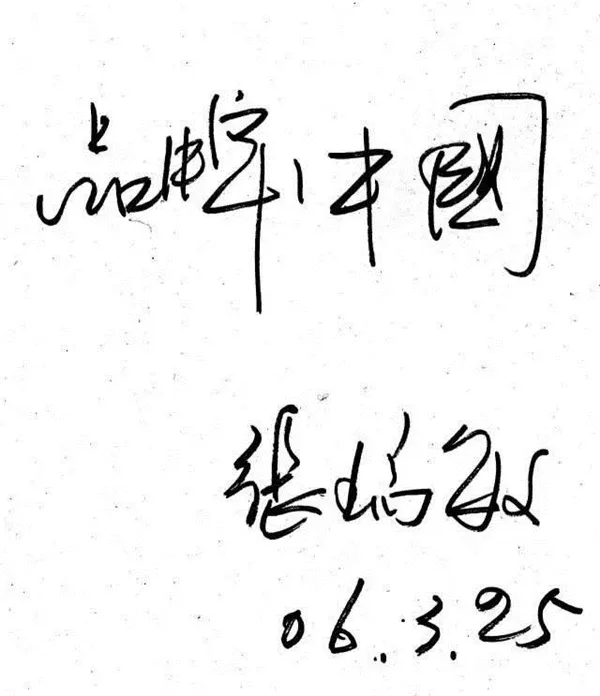 品牌中國
张瑞敏
06.3.25